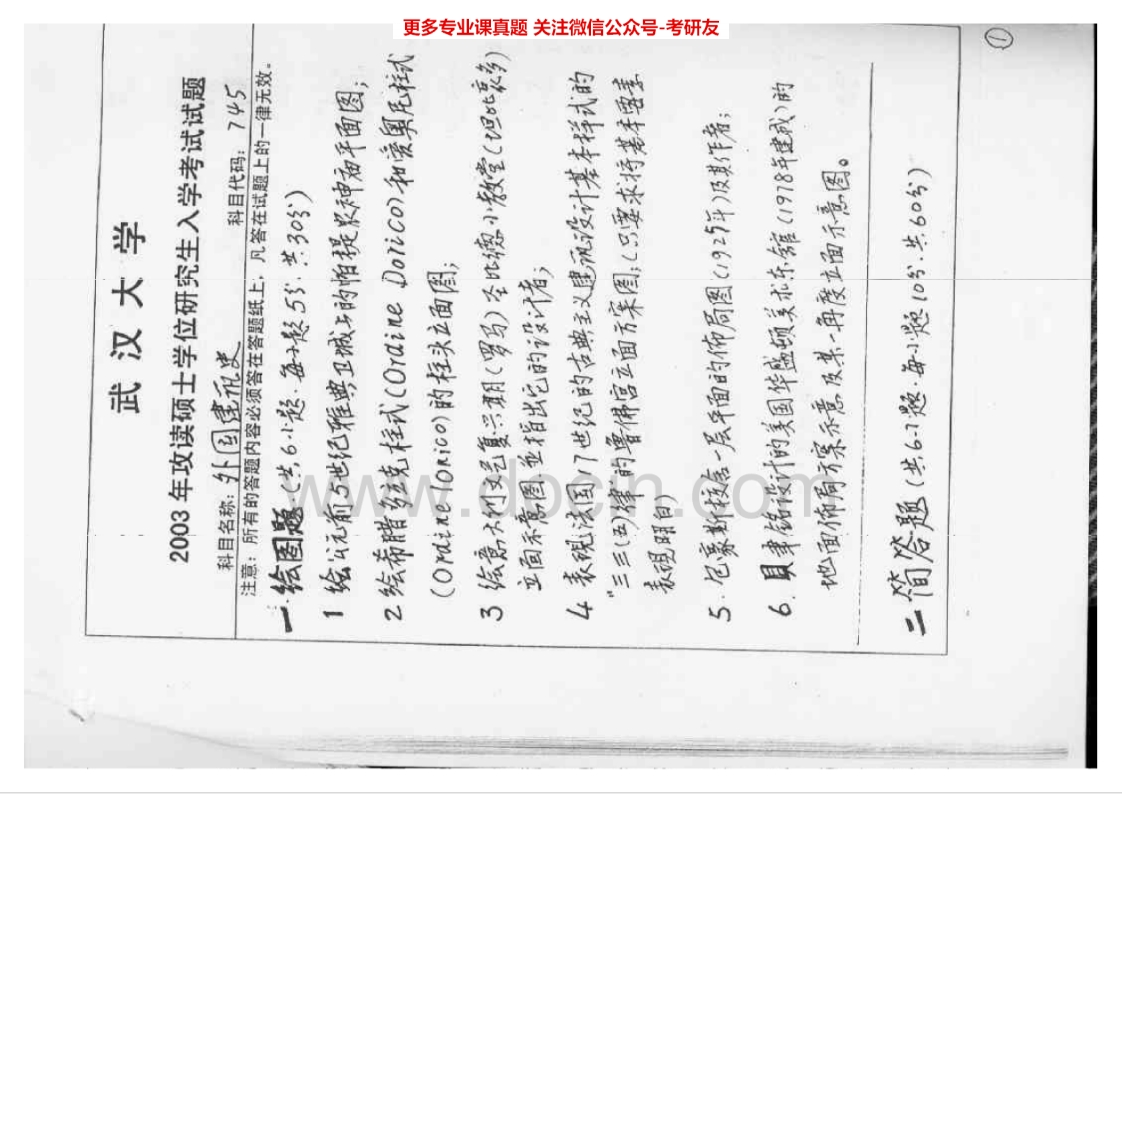 更多专业课真题 关注微信公众号-考研友
①
武汉大学
2003 年攻读硕士学位研究生入学考试试题
科目名称：外国建筑史 科目代码：745
注意：所有的答题内容必须答在答题纸上，凡答在试题上的一律无效。
一.绘图题（共6小题.每小题5分.共30分）
1 绘公元前5世纪雅典卫城上的帕提农神庙平面图；
2 绘希腊多立克柱式(Ordine Dorico)和爱奥尼柱式
(Ordine Ionico)的柱头立面图；
3 绘意大利文艺复兴期(罗马)圣比德小教堂(坦比哀多)
立面示意图并指出它的设计者；
4 表现法国17世纪的古典主义建筑设计基本样式的
"三三(五)律"的鲁佛宫立面方案图；(只要求将基本要素
表现明白)
5.包豪斯校舍一层平面的佈局图(1925年)及其作者；
6.贝聿铭设计的美国华盛顿美术东舘(1978年建成)的
地面佈局方案示意及某一角度立面示意图。
二 简答题(共6小题.每小题10分.共60分)
www.docin.com